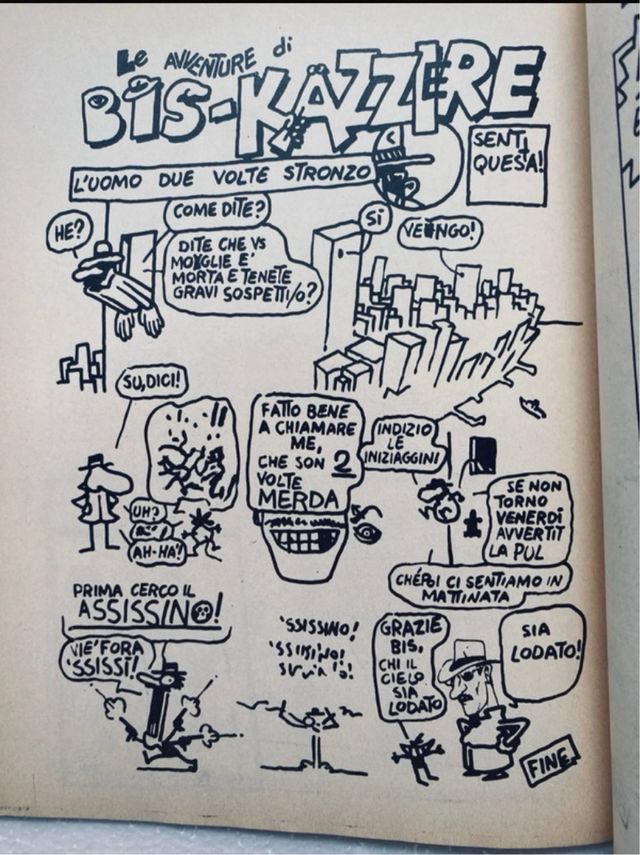 Le AVVENTURE di
BIS-KÄZZIERE
SENTI
QUESTA!
L'UOMO DUE VOLTE STRONZO
HE?
COME DITE?
DITE CHE VS
MOGLIE E'
MORTA E TENETE
GRAVI SOSPETTI/O?
SI
VENGO!
SU, DICI!
UH?
AH-HA?
FATTO BENE
A CHIAMARE
ME,
CHE SON 2
VOLTE
MERDA
INDIZIO
LE
INIZIAGGINI
SE NON
TORNO
VENERDÌ
AVVERTIT
LA PUL
CI SENTIAMO IN
MATTINATA
PRIMA CERCO IL
ASSISSINO!
VIE' FORA
'SSISSI!
'SSISSINO!
GRAZIE
BIS,
CHI IL
CIELO
SIA
LODATO
SIA
LODATO!
FINE